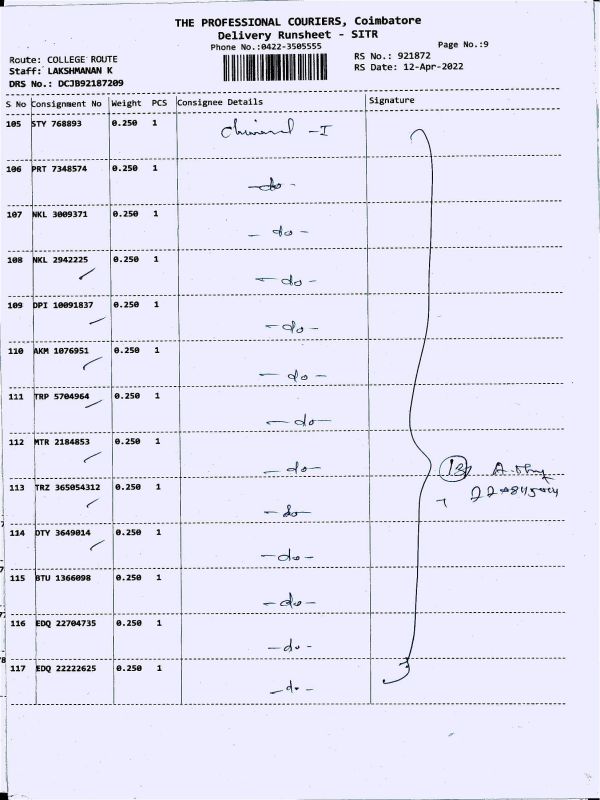 THE PROFESSIONAL COURIERS, Coimbatore
Delivery Runsheet - SITR
Phone No.:0422-3505555
Page No.:9
Route: COLLEGE ROUTE
RS No.: 921872
Staff: LAKSHMANAN K
RS Date: 12-Apr-2022
DRS No.: DCJB92187209
S No Consignment No Weight PCS Consignee Details Signature
105 STY 768893 0.250 1
106 PRT 7348574 0.250 1
- do -
107 NKL 3009371 0.250 1
- do -
108 NKL 2942225 0.250 1
- do -
109 DPI 10091837 0.250 1
- do -
110 AKM 1076951 0.250 1
- do -
111 TRP 5704964 0.250 1
- do -
112 MTR 2184853 0.250 1
- do -
113 TRZ 365054312 0.250 1
- do -
114 DTY 3649014 0.250 1
- do -
115 BTU 1366098 0.250 1
- do -
116 EDQ 22704735 0.250 1
- do -
117 EDQ 22222625 0.250 1
- do -